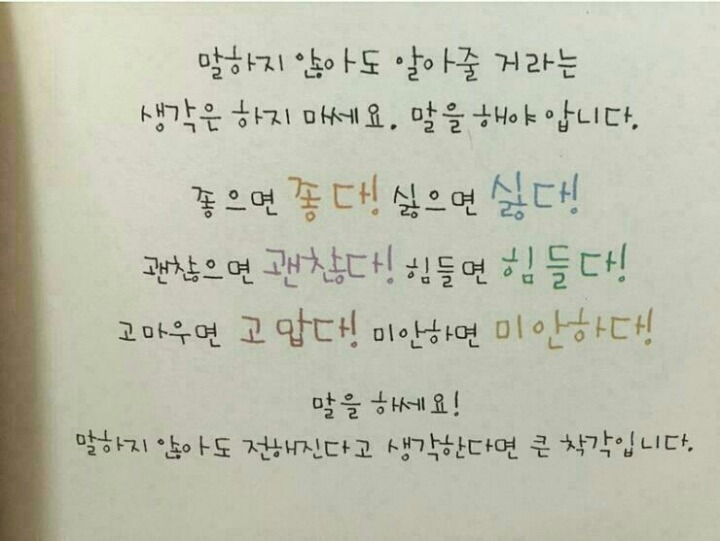 말하지 않아도 알아줄 거라는
생각은 하지 마세요. 말을 해야 압니다.
좋으면 좋다! 싫으면 싫다!
괜찮으면 괜찮다! 힘들면 힘들다!
고마우면 고맙다! 미안하면 미안하다!
말을 하세요!
말하지 않아도 전해진다고 생각한다면 큰 착각입니다.